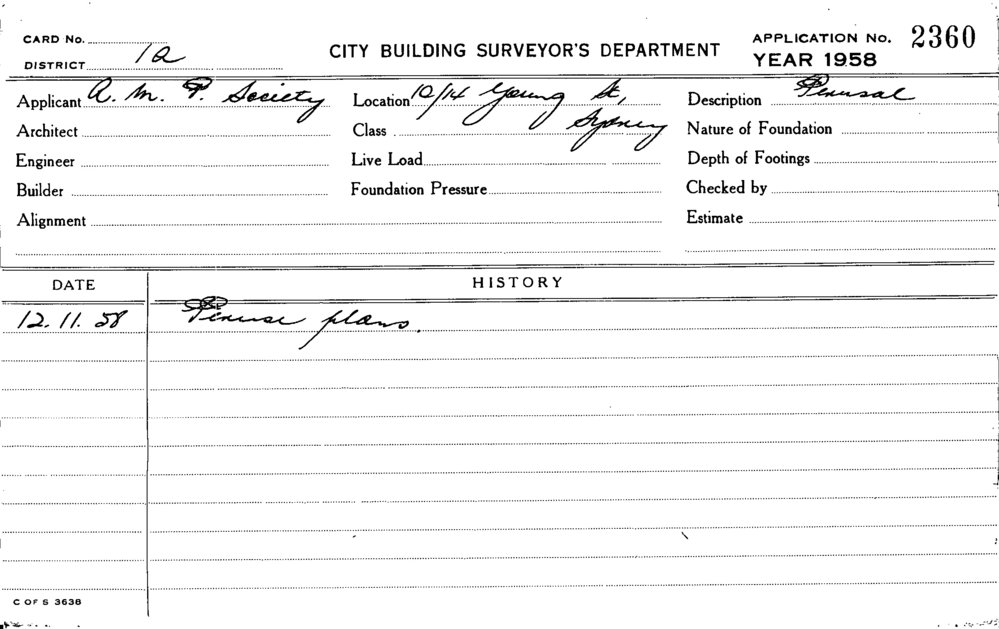 CARD No.
DISTRICT 1a
CITY BUILDING SURVEYOR'S DEPARTMENT
APPLICATION No. 2360
YEAR 1958
Applicant A. M. P. Society
Location 10/14 Young St,
Description Perusal
Architect
Class Sydney
Nature of Foundation
Engineer
Live Load
Depth of Footings
Builder
Foundation Pressure
Checked by
Alignment
Estimate
DATE
HISTORY
12.11.58 Peruse plans.
C OF S 3638